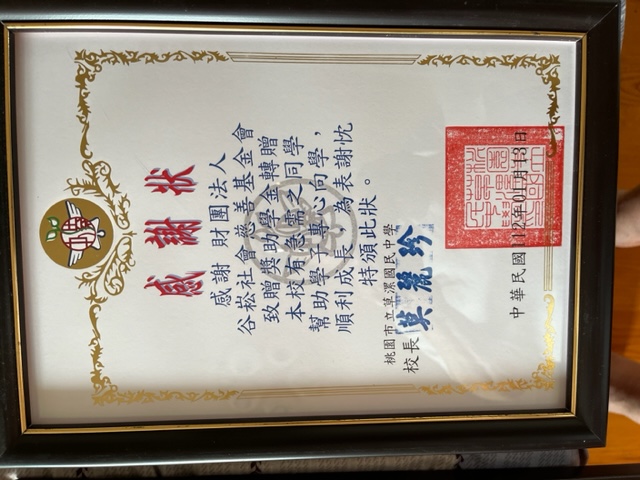 感謝狀
感謝 財團法人
谷崧社會慈善基金會
致贈獎助學金轉贈
本校有急需之同學
幫助學子專心向學，
順利成長，為表謝忱
特頒此狀。
桃園市立草漯國民中學
校長 莫麗珍
中華民國112年01月13日